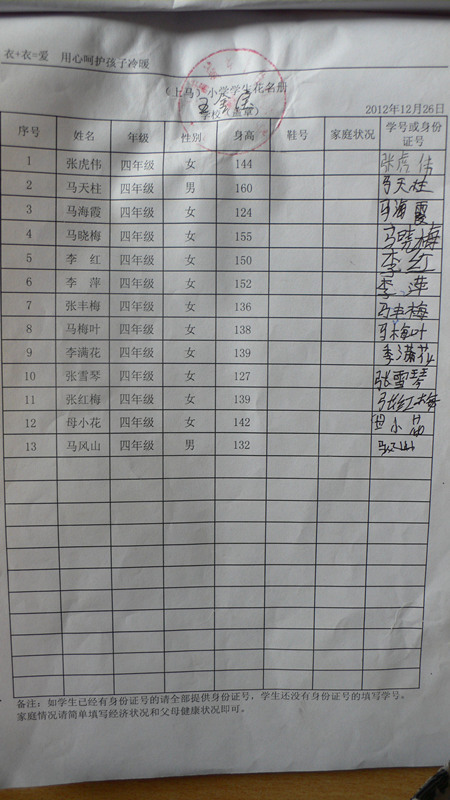 衣+衣=爱 用心呵护孩子冷暖
(上马)小学学生花名册
学校(盖章)
2012年12月26日
序号 姓名 年级 性别 身高 鞋号 家庭状况 学号或身份证号
1 张虎伟 四年级 女 144 张虎伟
2 马天柱 四年级 男 160 马天柱
3 马海霞 四年级 女 124 马海霞
4 马晓梅 四年级 女 155 马晓梅
5 李 红 四年级 女 150 李红
6 李 萍 四年级 女 152 李萍
7 张丰梅 四年级 女 136 丰梅
8 马梅叶 四年级 女 138 马梅叶
9 李满花 四年级 女 139 李满花
10 张雪琴 四年级 女 127 张雪琴
11 张红梅 四年级 女 139 张红梅
12 母小花 四年级 女 142 母小花
13 马风山 四年级 男 132 马风山
备注:如学生已经有身份证号的请全部提供身份证号,学生还没有身份证号的填写学号。
家庭情况请简单填写经济状况和父母健康状况即可。